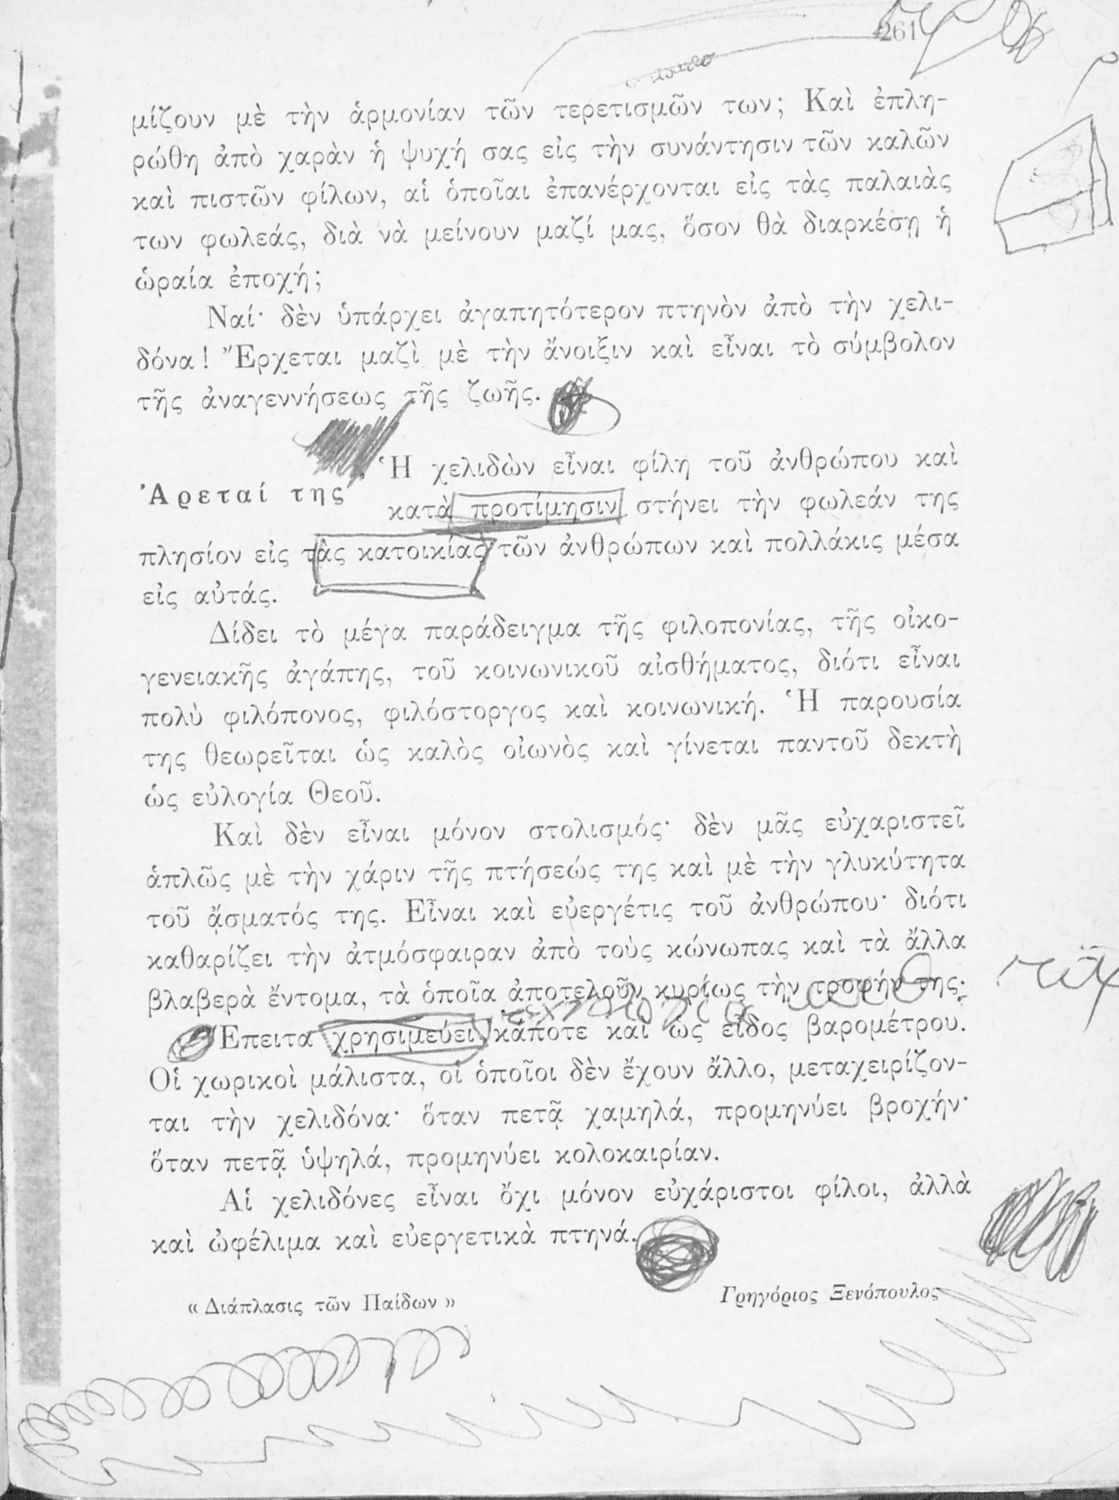 261
μίζουν μὲ τὴν ἁρμονίαν τῶν τερετισμῶν των; Καὶ ἐπλη-
ρώθη ἀπὸ χαρὰν ἡ ψυχή σας εἰς τὴν συνάντησιν τῶν καλῶν
καὶ πιστῶν φίλων, αἱ ὁποῖαι ἐπανέρχονται εἰς τὰς παλαιὰς
των φωλεάς, διὰ νὰ μείνουν μαζί μας, ὅσον θὰ διαρκέσῃ ἡ
ὡραία ἐποχή;
Ναί· δὲν ὑπάρχει ἀγαπητότερον πτηνὸν ἀπὸ τὴν χελι-
δόνα! Ἔρχεται μαζὶ μὲ τὴν ἄνοιξιν καὶ εἶναι τὸ σύμβολον
τῆς ἀναγεννήσεως τῆς ζωῆς.
Ἀρεταί της
Ἡ χελιδὼν εἶναι φίλη τοῦ ἀνθρώπου καὶ
κατὰ προτίμησιν στήνει τὴν φωλεάν της
πλησίον εἰς τὰς κατοικίας τῶν ἀνθρώπων καὶ πολλάκις μέσα
εἰς αὐτάς.
Δίδει τὸ μέγα παράδειγμα τῆς φιλοπονίας, τῆς οἰκο-
γενειακῆς ἀγάπης, τοῦ κοινωνικοῦ αἰσθήματος, διότι εἶναι
πολὺ φιλόπονος, φιλόστοργος καὶ κοινωνική. Ἡ παρουσία
της θεωρεῖται ὡς καλὸς οἰωνὸς καὶ γίνεται παντοῦ δεκτὴ
ὡς εὐλογία Θεοῦ.
Καὶ δὲν εἶναι μόνον στολισμός· δὲν μᾶς εὐχαριστεῖ
ἁπλῶς μὲ τὴν χάριν τῆς πτήσεώς της καὶ μὲ τὴν γλυκύτητα
τοῦ ᾄσματός της. Εἶναι καὶ εὐεργέτις τοῦ ἀνθρώπου· διότι
καθαρίζει τὴν ἀτμόσφαιραν ἀπὸ τοὺς κώνωπας καὶ τὰ ἄλλα
βλαβερὰ ἔντομα, τὰ ὁποῖα ἀποτελοῦν κυρίως τὴν τροφήν της.
Ἔπειτα χρησιμεύει κάποτε καὶ ὡς εἶδος βαρομέτρου.
Οἱ χωρικοὶ μάλιστα, οἱ ὁποῖοι δὲν ἔχουν ἄλλο, μεταχειρίζον-
ται τὴν χελιδόνα· ὅταν πετᾷ χαμηλά, προμηνύει βροχήν·
ὅταν πετᾷ ὑψηλά, προμηνύει κολοκαιρίαν.
Αἱ χελιδόνες εἶναι ὄχι μόνον εὐχάριστοι φίλοι, ἀλλὰ
καὶ ὠφέλιμα καὶ εὐεργετικὰ πτηνά.
« Διάπλασις τῶν Παίδων »
Γρηγόριος Ξενόπουλος